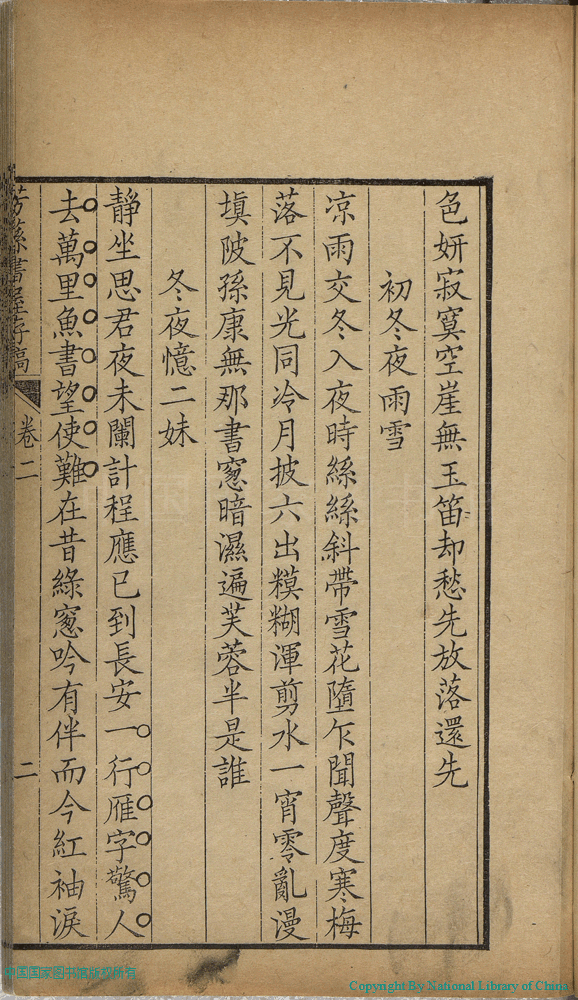 色妍寂寞空崖無玉笛却愁先放落還先
初冬夜雨雪
凉雨交冬入夜時絲絲斜帶雪花隨乍聞聲度寒梅
落不見光同冷月披六出糢糊渾剪水一宵零亂漫
塡陂孫康無那書窻暗濕遍芙蓉半是誰
冬夜憶二妹
靜坐思君夜未闌計程應已到長安一行雁字驚人
去萬里魚書望使難在昔綠窻吟有伴而今紅袖淚
書屋存稿
卷二
二
中国国家图书馆版权所有
Copyright By National Library of China